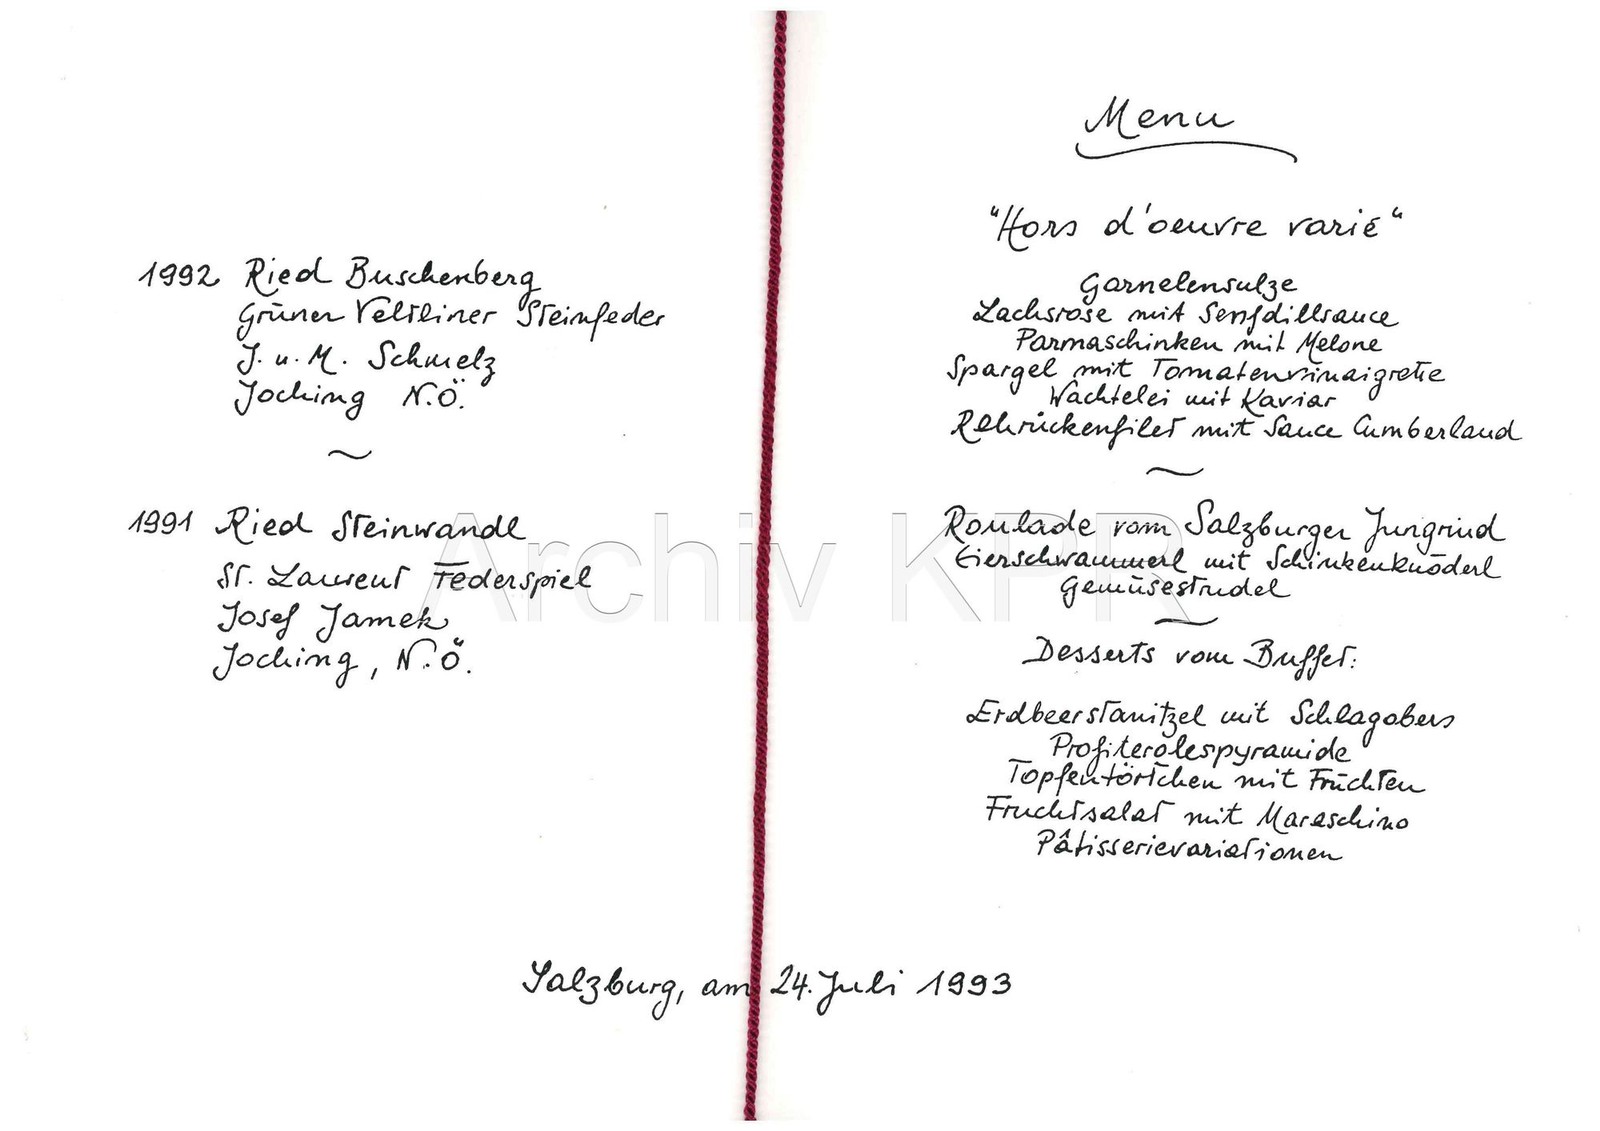 1992 Ried Buschenberg
Grüner Veltliner Steinfeder
J. u. M. Schmelz
Joching N.Ö.
~
1991 Ried Steinwandl
St. Laurent Federspiel
Josef Jamek
Joching, N.Ö.
Menu
"Hors d'oeuvre varié"
Garnelensulze
Lachsrose mit Senfdillsauce
Parmaschinken mit Melone
Spargel mit Tomatenvinaigrette
Wachtelei mit Kaviar
Rehrückenfilet mit Sauce Cumberland
~
Roulade vom Salzburger Jungrind
Eierschwammerl mit Schinkenknöderl
Gemüsestrudel
~
Desserts vom Buffet:
Erdbeerstanitzel mit Schlagobers
Profiterolespyramide
Topfentörtchen mit Früchten
Fruchtsalat mit Maraschino
Pâtisserievariationen
Salzburg, am 24. Juli 1993
Archiv KPR